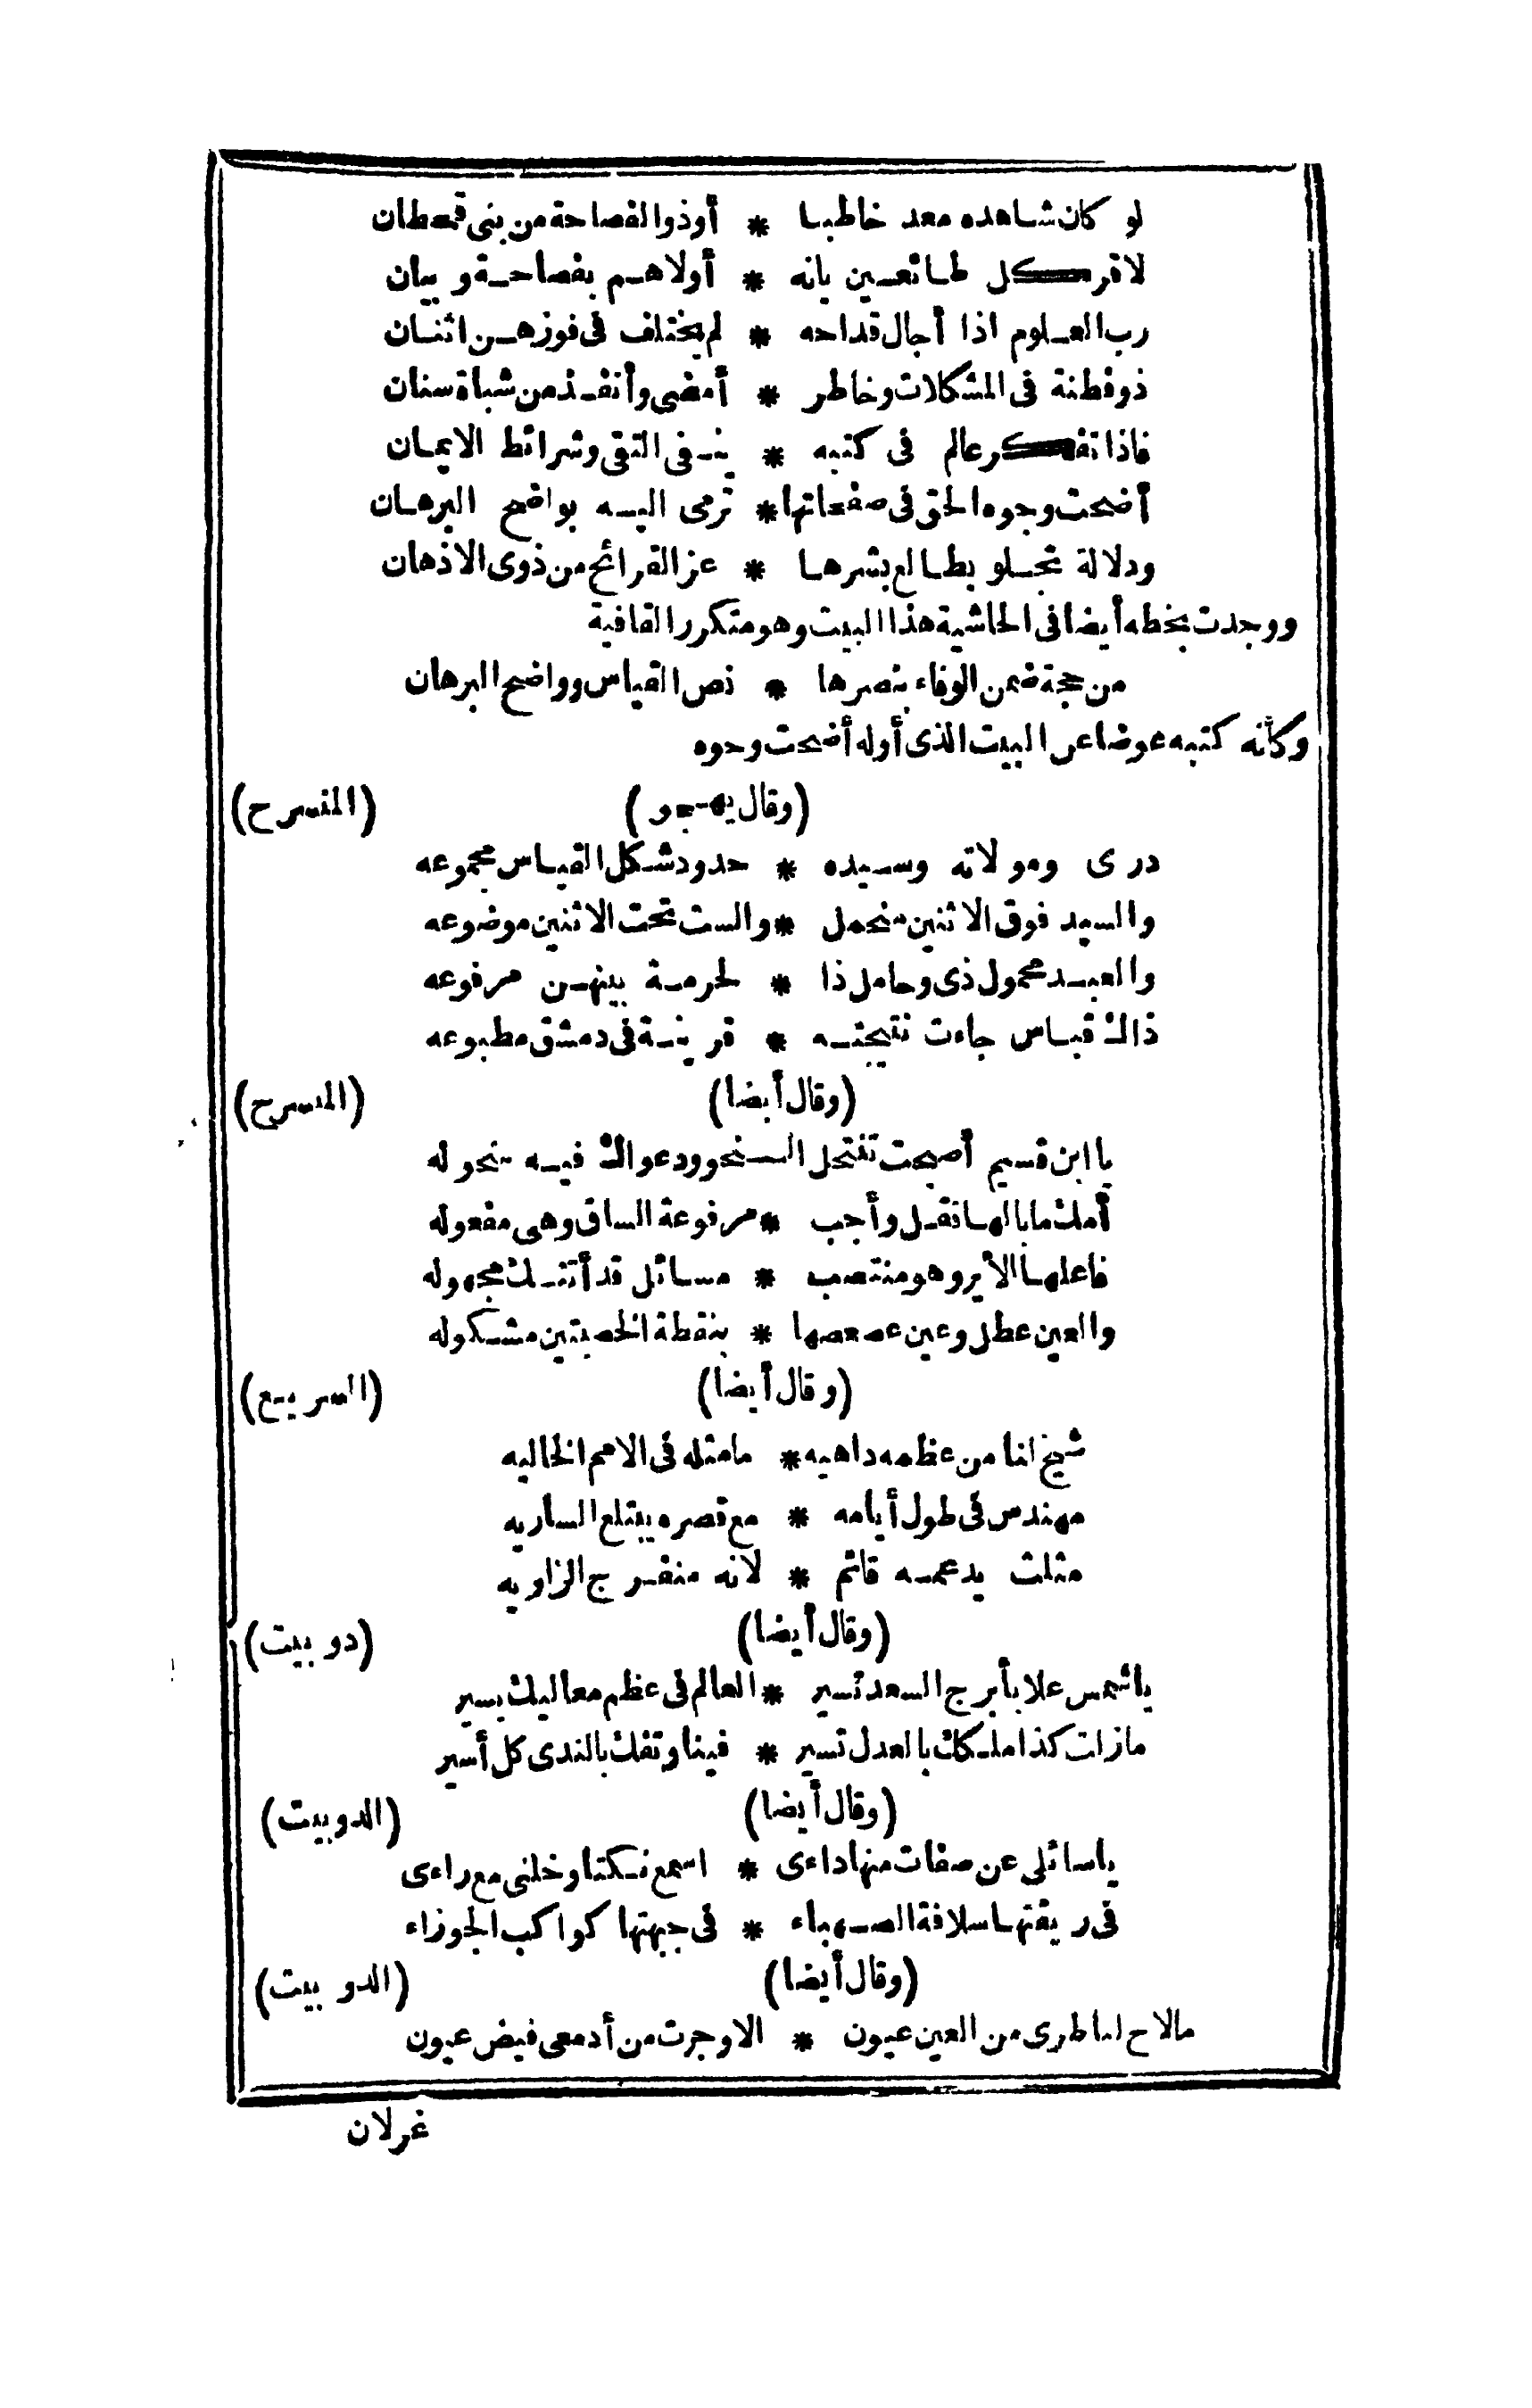 لو كان شاهده معد خاطبا * أوذوا لفصاحة من بنى قحطان
لاقر كل طائعين بانه * أولاهم بفصاحة وبيان
رب العلوم اذا أجال قداحه * لم يختلف فى فوزهن اثنان
ذو فطنة فى المشكلات وخاطر * أمضى وأنفذ من شباة سنان
فاذا تفكر عالم فى كتبه * ينفى التقى وشرائط الايمان
أضحت وجوه الحق فى صفحاتها * ترمى اليه بواضح البرهان
ودلالة تجلو بطالع بشرها * عز القرائح من ذوى الاذهان
ووجدت بخطه أيضا فى الحاشية هذا البيت وهو متكرر القافية
من حجة ضمن الوفاء بنصرها * نص القياس وواضح البرهان
وكأنه كتبه عوضا عن البيت الذى أوله أضحت وجوه
(وقال يهجو) (المنسرح)
درى ومولاته وسيده * حدود شكل القياس مجموعه
والسيد فوق الاثنين منحمل * والست تحت الاثنين موضوعه
والعبد محمول ذى وحامل ذا * لحرمة بينهن مرفوعه
ذاك قياس جاءت نتيجته * قرينة فى دمشق مطبوعه
(وقال أيضا) (المنسرح)
يا ابن قسيم أصبحت تنتحل النحو ودعواك فيه منحوله
أمك ما بالها نقل وأجب * مرفوعة الساق وهى مفعوله
فاعلها الأير وهو منتصب * مسائل قد أتتك مجهوله
والعين عطل وعين عصعصها * بنقطة الخصيتين مشكوله
(وقال أيضا) (السريع)
شيخ لنا من عظمه داهيه * ما مثله فى الامم الخاليه
مهندس فى طول أيامه * مع قصره يبتلع الساريه
مثلث يدعمه قائم * لانه منفرج الزاويه
(وقال أيضا) (دوبيت)
يا شمس علا بأبرج السعد تسير * العالم فى عظم معاليك يسير
مازلت كذا ملكك بالعدل تسير * فينا وتفك بالندى كل أسير
(وقال أيضا) (الدوبيت)
يا سائلى عن صفات منها داءى * اسمع نكتا وخلنى مع راءى
فى ريقتها سلافة الصهباء * فى جبهتها كواكب الجوزاء
(وقال أيضا) (الدوبيت)
مالاح لناطرى من العين عيون * الا وجرت من أدمعى فيض عيون
غزلان